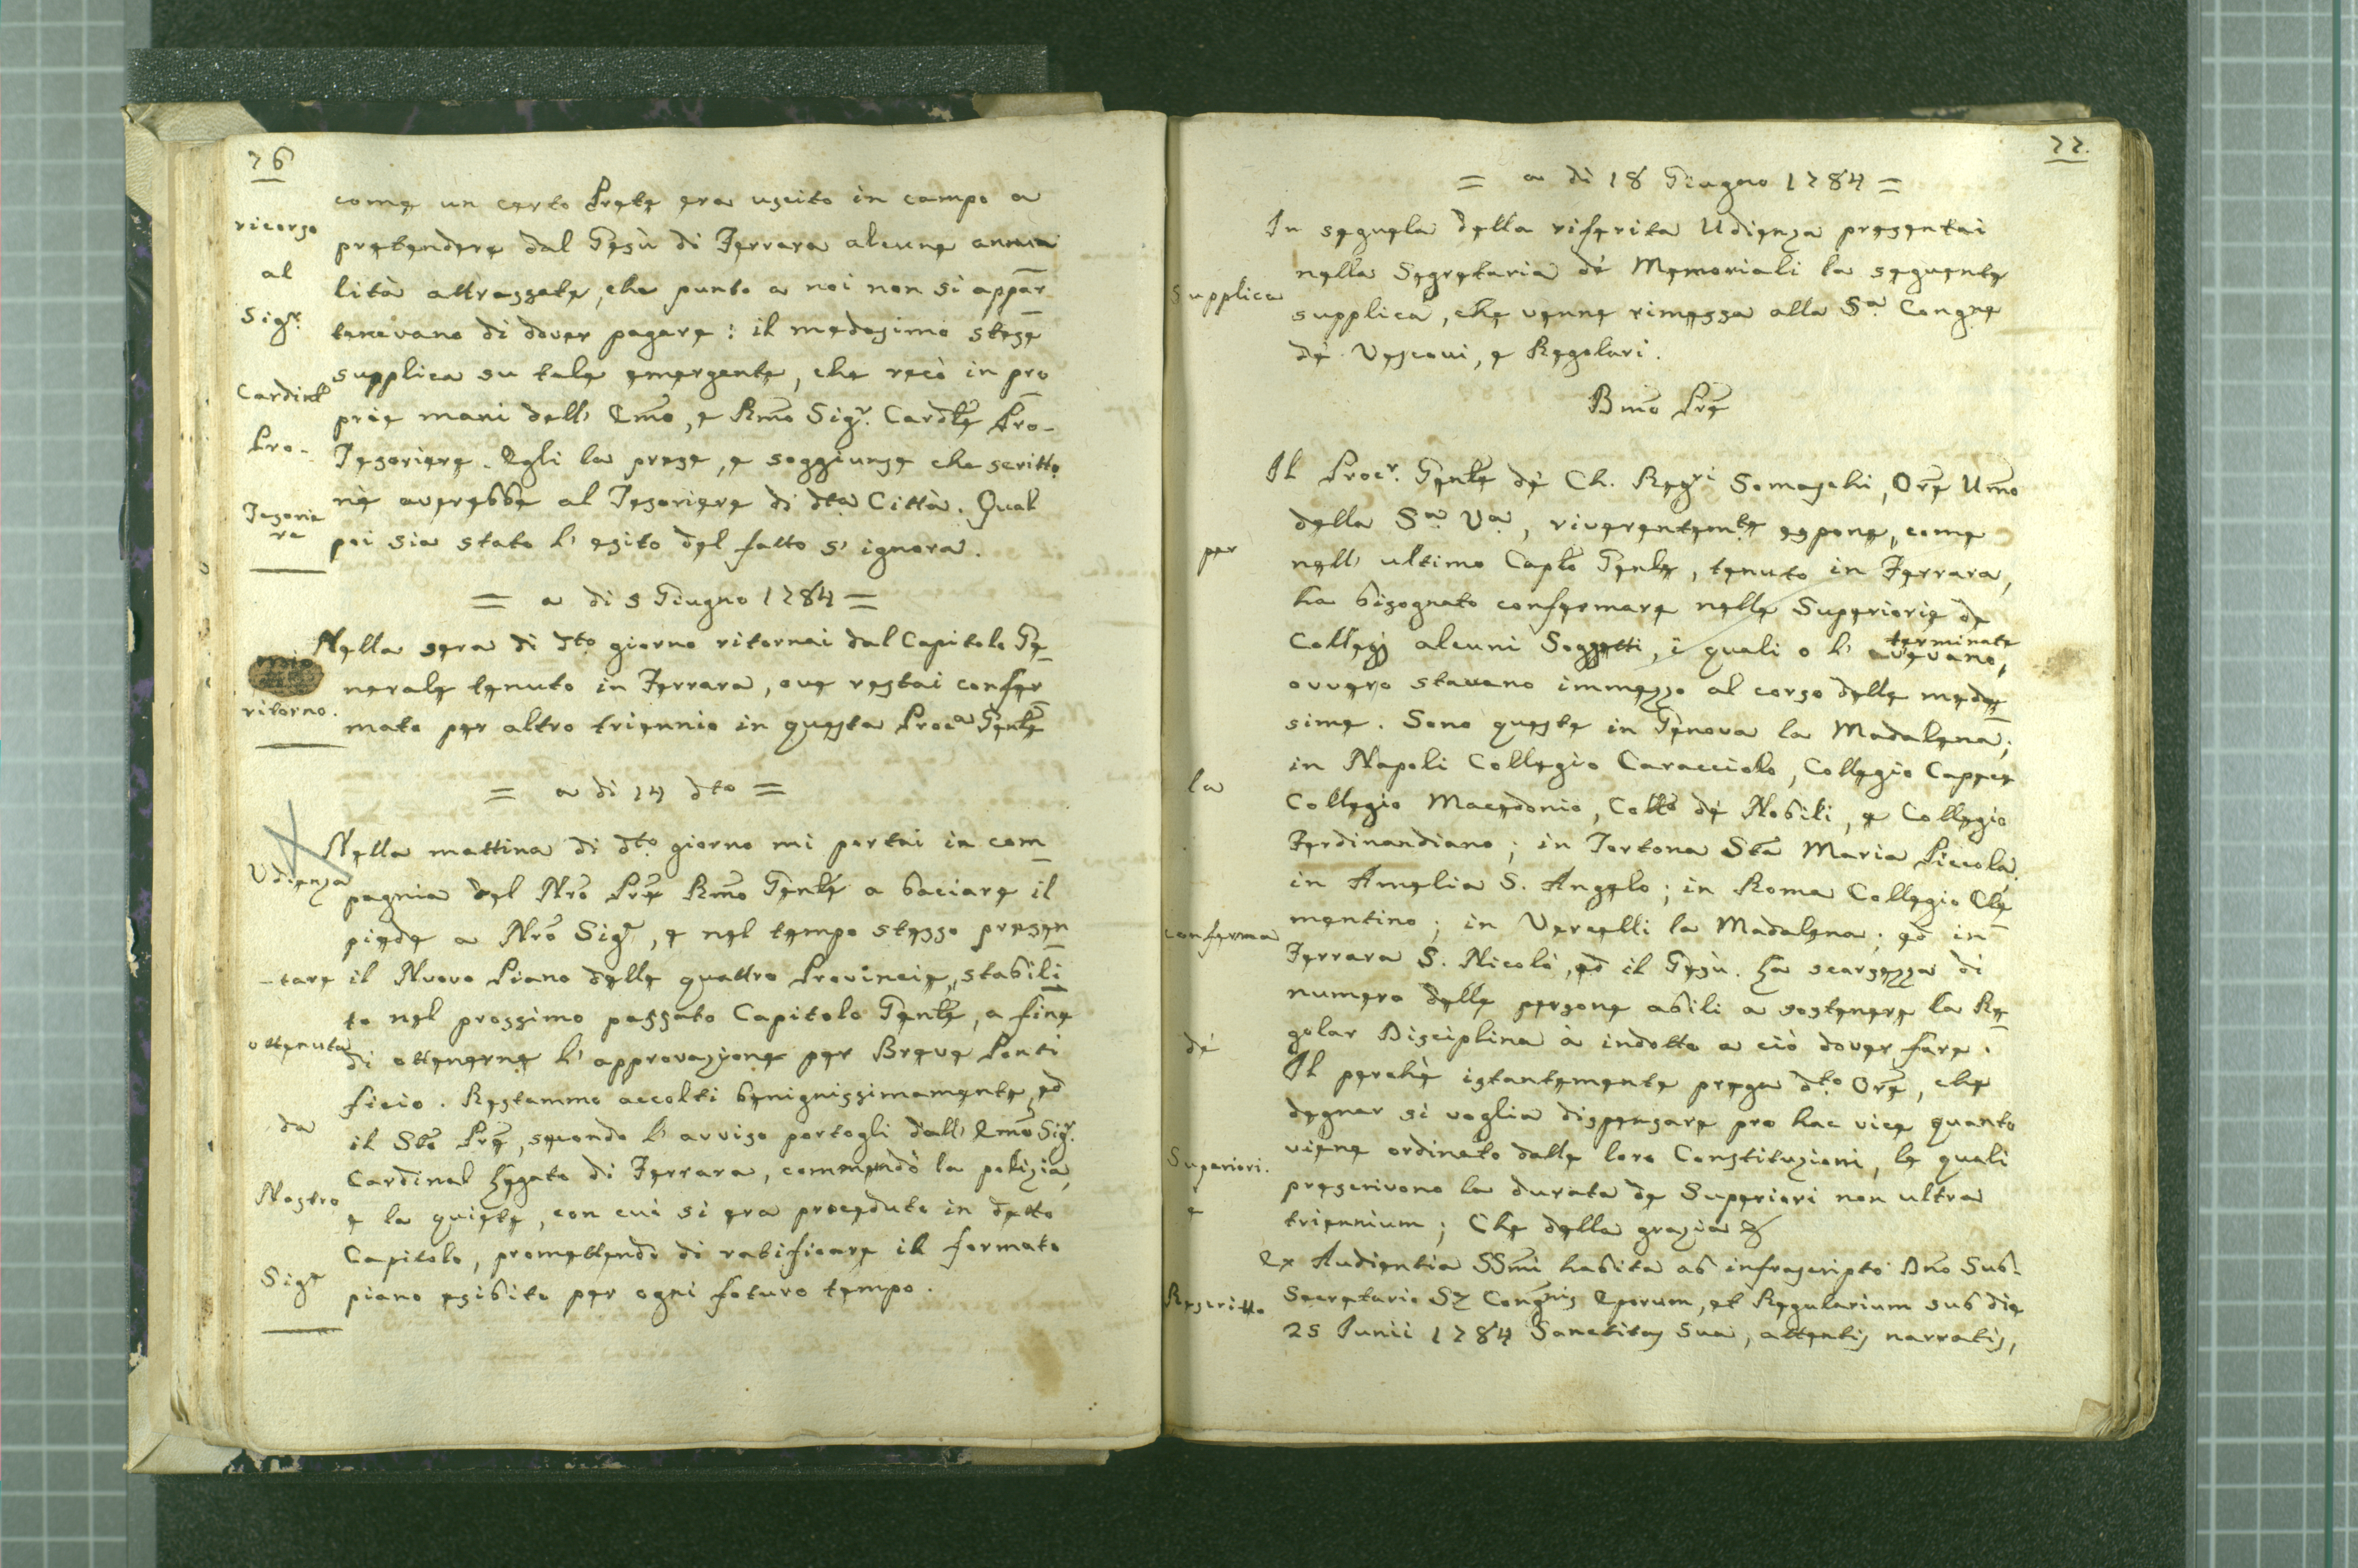 76
come un certo Prete era uscito in campo a
ricorso
pretendere dal Gesù di Ferrara alcune annua
al
lità attrassate, che punto a noi non si appar
Sigr.
tenevano di dover pagare: il medesimo stese
supplica su tale emergente, che recò in pro
Cardinl
prie mani dell' Emo, e Rmo Sigr. Cardle Pro-
Pro-
Tesoriere. Egli la prese, e soggiunse che scritto
nè averebbe al Tesoriere di dta Città. Qual
Tesorie
re
poi sia stato l' esito del fatto s' ignora.
= a di 5 Giugno 1784 =
Nella sera di dto giorno ritornai dal Capitolo Ge
mio
nerale tenuto in Ferrara, ove restai confer
ritorno.
mato per altro triennio in questa Proca Genle
= a di 14 dto =
Nella mattina di dto giorno mi portai in com
Udienza
pagnia del Nro Pre Rmo Genle a baciare il
piede a Nro Sigr, e nel tempo stesso presen
-tare il Nuovo Piano delle quattro Provincie, stabili
to nel prossimo passato Capitolo Genle, a fine
ottenuta
di ottenerne l' approvazione per Breve Ponti
ficio. Restammo accolti benignissimamente, ed
da
il Sto Pre, secondo l' avviso portogli dall' Emo Sigr.
Cardinal Legato di Ferrara, commendò la polizia,
Nostro
e la quiete, con cui si era proceduto in detto
Capitolo, promettendo di ratificare il formato
Sigr
piano esibito per ogni futuro tempo.
77.
= a di 18 Giugno 1784 =
In sequela della riferita Udienza presentai
nella Segretaria dé Memoriali la seguente
Supplica
supplica, che venne rimessa alla Sa. Congne
dé Vescovi, e Regolari.
Bmo Pre
Il Procr. Genle dé Ch. Regri Somaschi, Ore Umo
della Sa. Va, riverentemte espone, come
per
nell' ultimo Caplo Genle, tenuto in Ferrara,
ha bisognato confermare nelle Superiorie de
Collegj alcuni Soggetti, i quali o l' avevano,
terminate
ovvero stavano immezzo al corso delle mede
sime. Sono queste in Genova la Madalena;
in Napoli Collegio Caracciolo, Collegio Capece
la
Collegio Macedonio, Collo dé Nobili, e Collegio
Ferdinandiano; in Tortona Sta Maria Piccola,
in Amelia S. Angelo; in Roma Collegio Cle
mentino; in Vercelli la Madalena; ed in
conferma
Ferrara S. Nicolò, ed il Gesù. La scarsezza di
numero delle persone abili a sostenere la Re
golar Disciplina à indotto a ciò dover fare.
dé
Il perchè istantemente prega dto Ore, che
degnar si voglia dispensare pro hac vice quanto
viene ordinato dalle loro Constituzioni, le quali
Superiori.
prescrivono la durata de Superiori non ultra
e
triennium; Che della grazia &
Ex Audientia SSmi habita ab infrascripto Dno Sub-
Rescritto
Secretario Sę Congnis Eporum, et Regularium sub die
25 Junii 1784 Sanctitas Sua, attentis narratis,